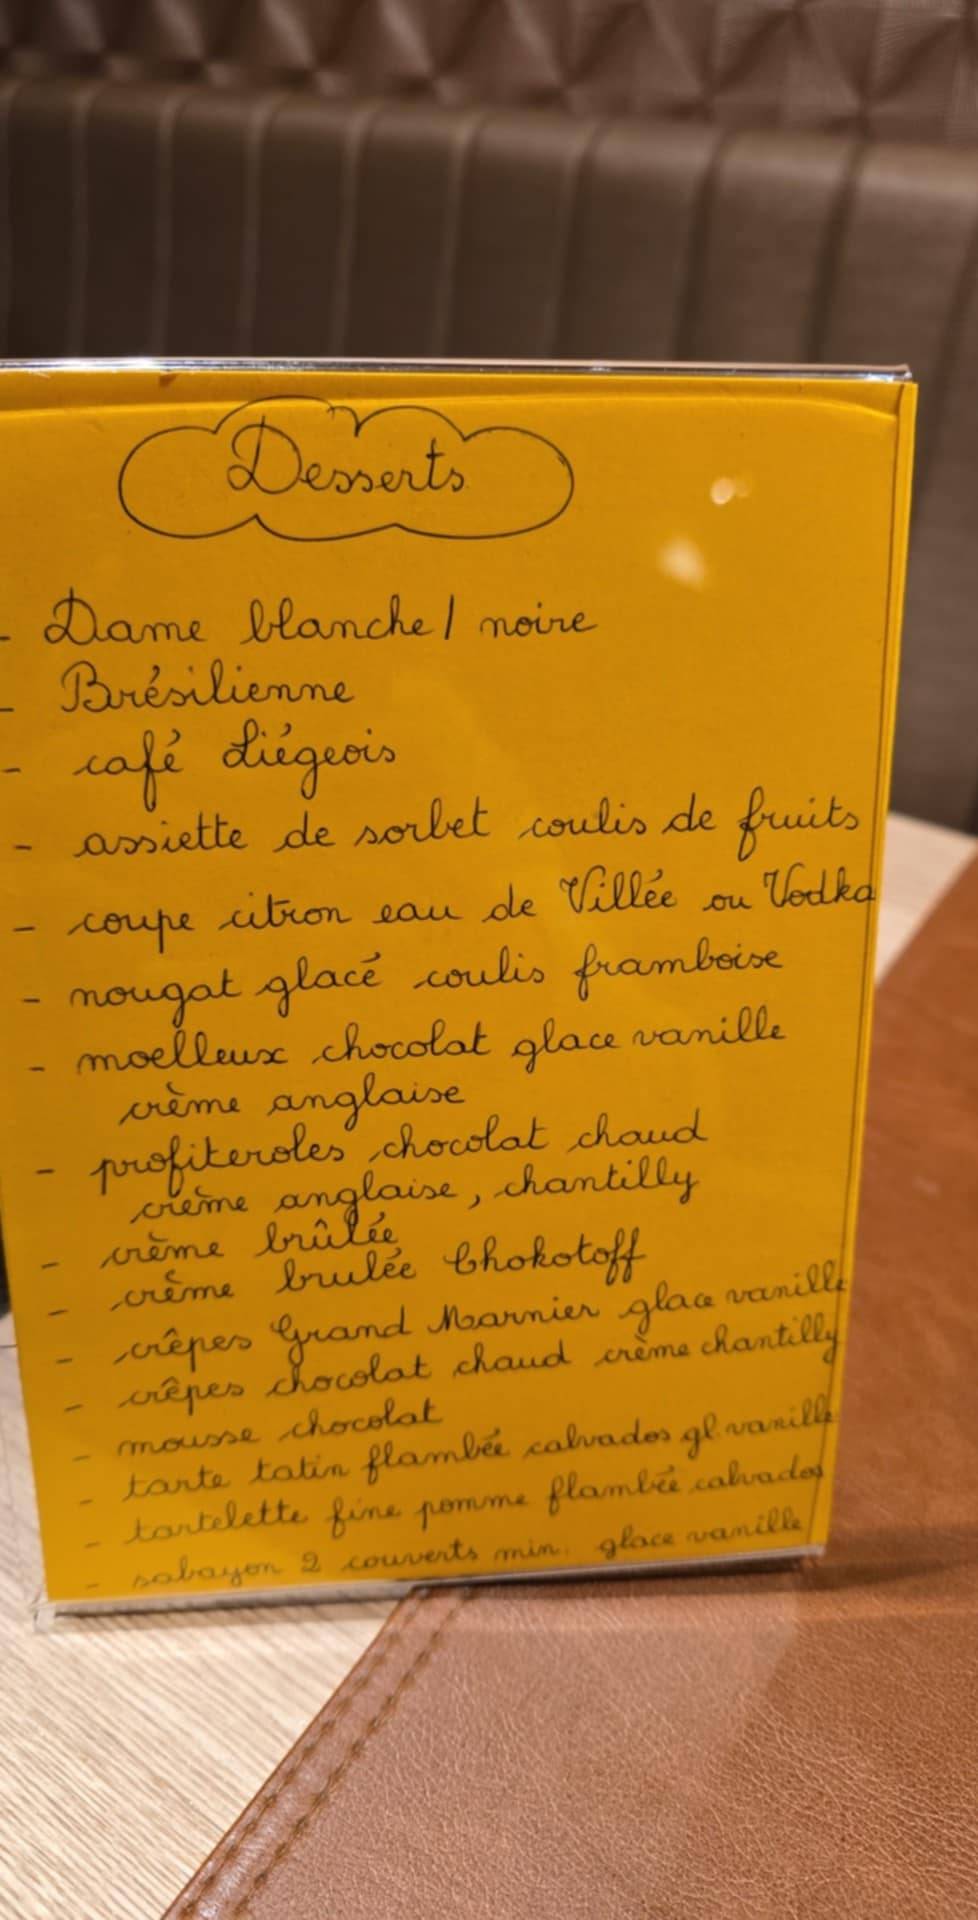 Desserts
- Dame blanche / noire
- Brésilienne
- café Liégeois
- assiette de sorbet coulis de fruits
- coupe citron eau de Villée ou Vodka
- nougat glacé coulis framboise
- moelleux chocolat glace vanille
crème anglaise
- profiteroles chocolat chaud
crème anglaise, chantilly
- crème brûlée
- crème brulée Chokotoff
- crêpes Grand Marnier glace vanille
- crêpes chocolat chaud crème chantilly
- mousse chocolat
- tarte tatin flambée calvados gl. vanille
- tartelette fine pomme flambée calvados
- sabayon 2 couverts min. glace vanille